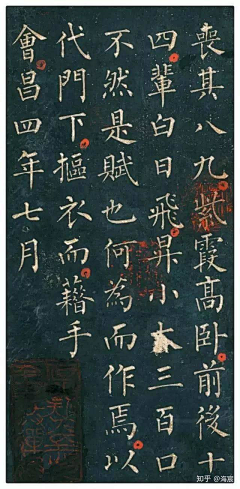 喪其八九紫霞高卧前後十
四輩白日飛昇小大三百口
不然是賦也何為而作焉以
代門下摳衣而藉手
會昌四年七月
知乎 @海宸